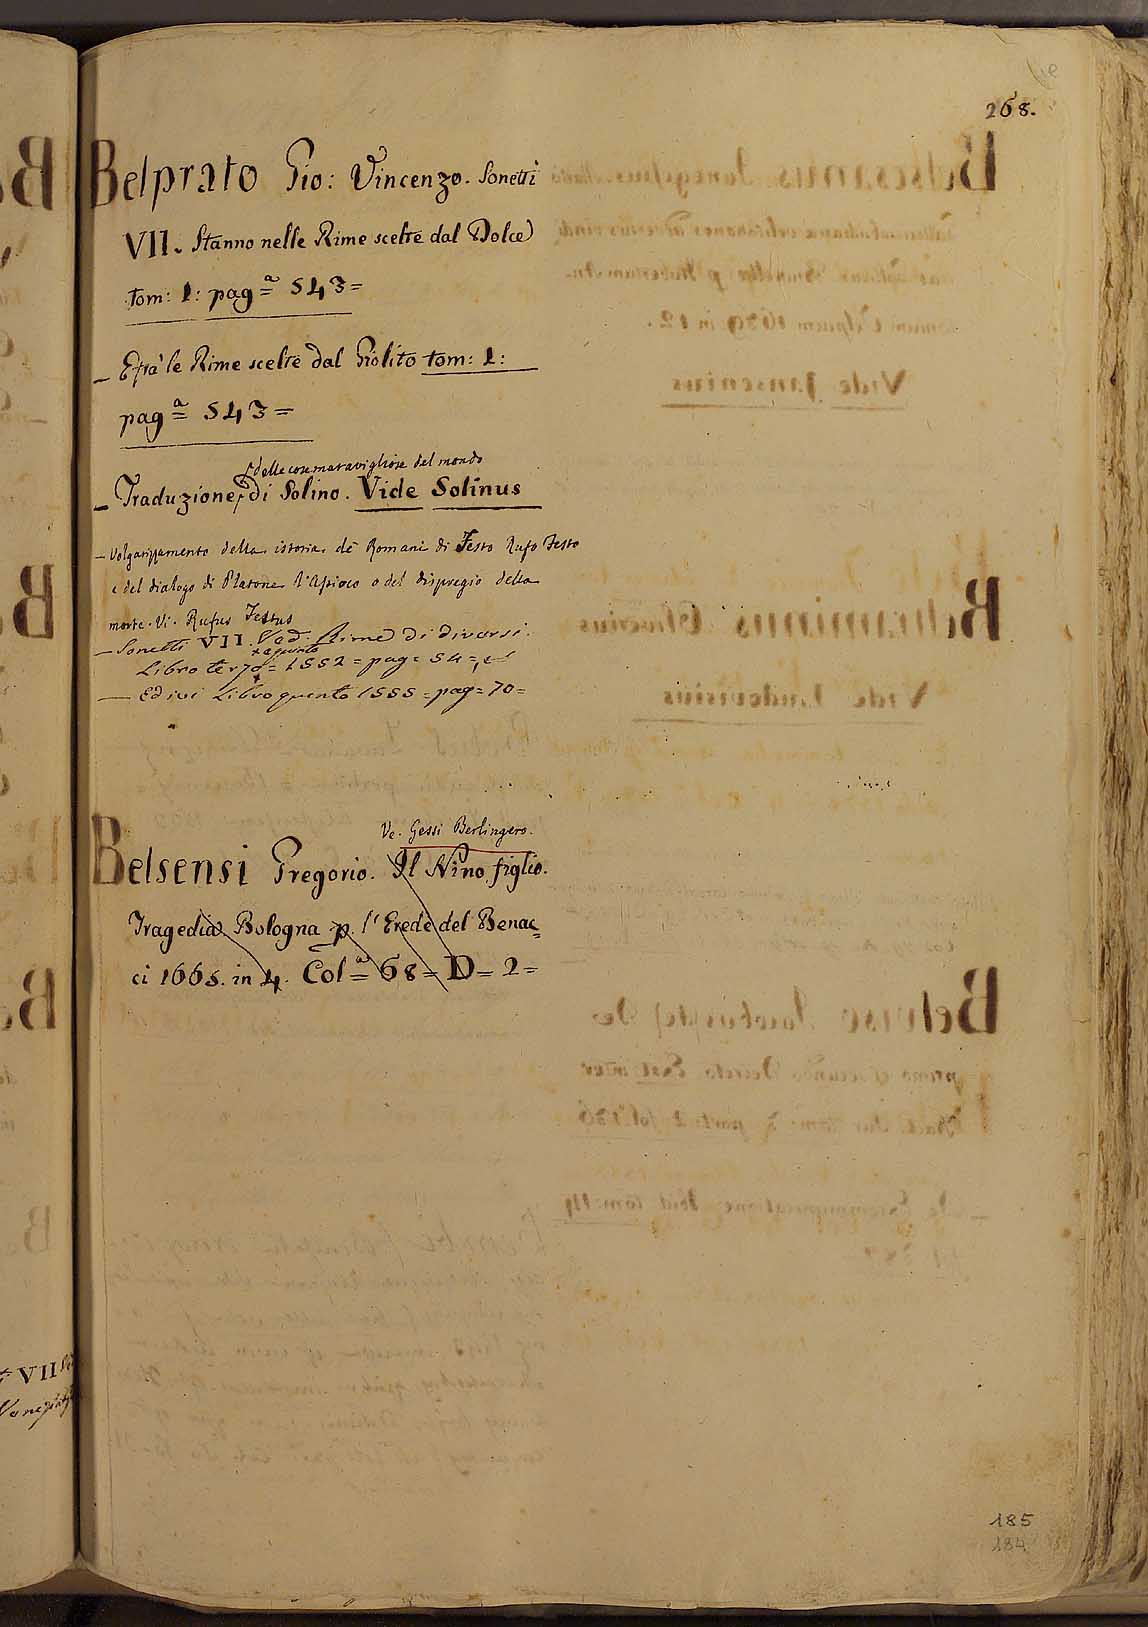 268.
Belprato Gio: Vincenzo. Sonetti
VII. Stanno nelle Rime scelte dal Dolce
tom: 1: pagª= 543=
– E frà le Rime scelte dal Giolito tom: 1:
pagª= 543=
delle cose maravigliose del mondo
– Traduzione, di Solino. Vide Solinus
– Volgarizzamento della istoria de Romani di Festo Rufo Testo
e del dialogo di Platone l'Assioco o del dispregio della
morte. Vi. Rufus Festus
– Sonetti VII. Ved. Rime di diversi.
Libro terzo = 1552 = pag = 54 =
– Ed ivi Libro quinto 1555 = pag = 70 =
Ve. Gessi Berlingero.
Belsensi Gregorio. Il Nino figlio.
Tragedia Bologna p. l'Erede del Benac=
ci 1665. in 4. Colª= 68= D= 2=
VII
185
184